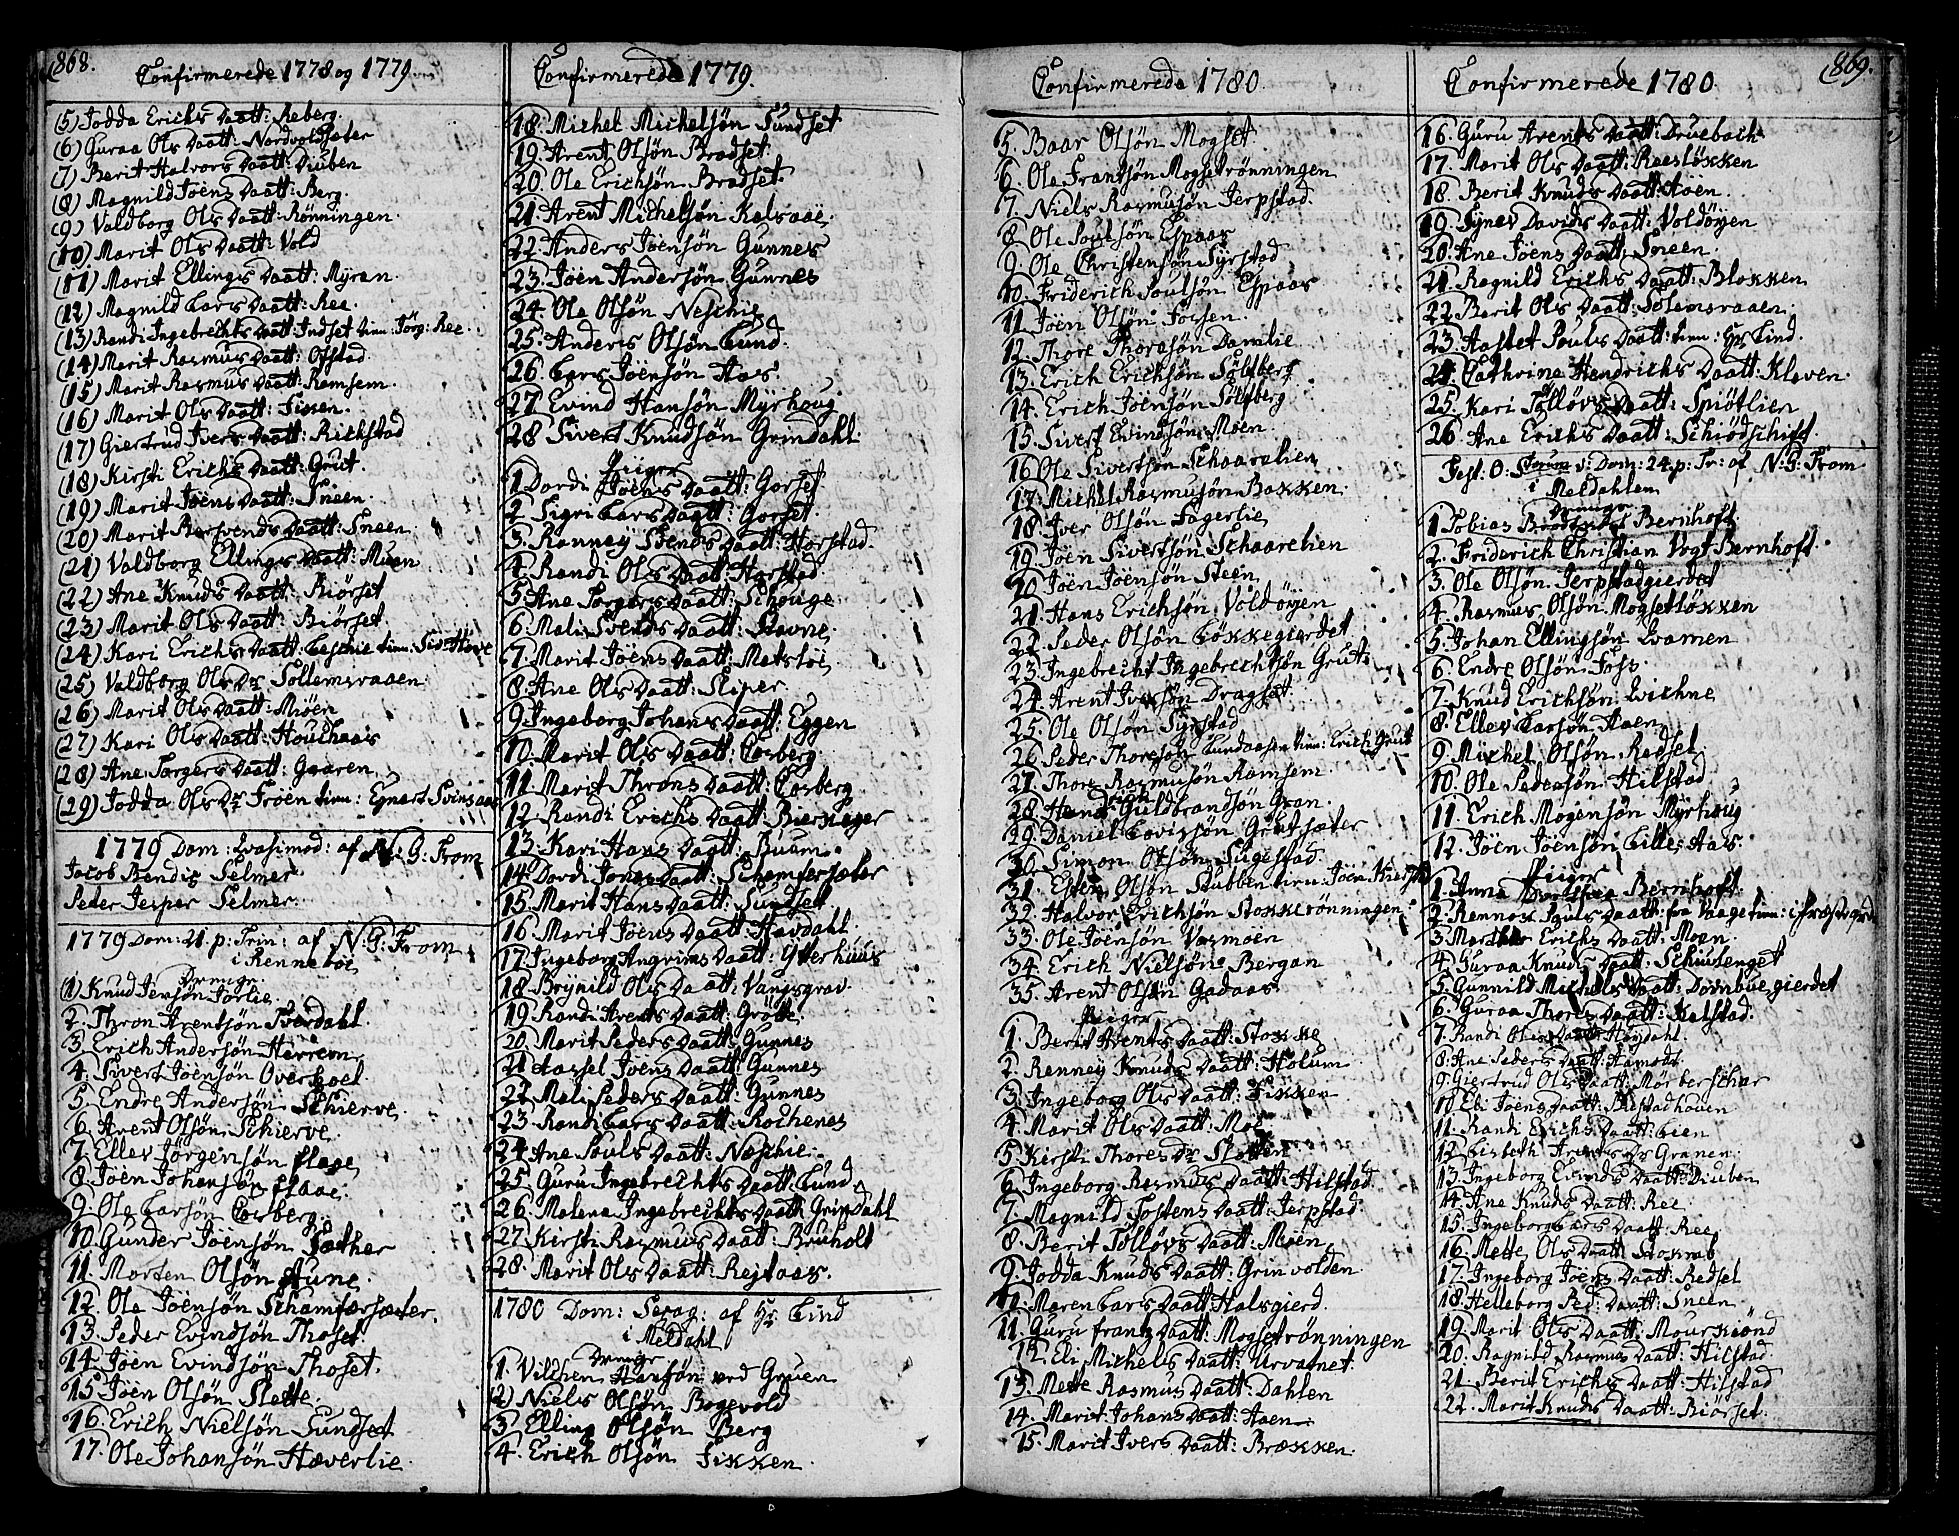 868.
Confirmerede 1778 og 1779.
(5) Jodda Erichs Daatt: Reberg.
(6) Guraa Ols Daatt: Nordvoldsæter
(7) Berit Halvors Daatt: Diuben
(8) Magnild Joens Daatt: Berg.
(9) Valdborg Ols Daatt: Rönningen.
(10) Marit Ols Daatt: Vold
(11) Marit Ellings Daatt: Myran.
(12) Magnild Lars Daatt: Ree.
(13) Randi Ingebrechts Daatt: Indset tien: Jörg: Ree.
(14) Marit Rasmus Daatt: Ofstad.
(15) Marit Rasmus Daatt: Ramsem.
(16) Marit Ols Daatt: Fissen.
(17) Giertrud Ivers Daatt: Richstad
(18) Kirsti Erichs Daatt: Grut.
(19) Marit Joens Daatt: Sneen.
(20) Marit Bersvends Daatt: Sneen.
(21) Valdborg Ellings Daatt: Muen
(22) Ane Knuds Daatt: Biörset
(23) Marit Ols Daatt: Biörset.
(24) Kari Erichs Daatt: Leschie tien: Siv: Hove
(25) Valdborg Ols Dr Sollemsraaen.
(26) Marit Ols Daatt: Miöen.
(27) Kari Ols Daatt: Houchaas
(28) Ane Torgers Daatt: Gaaren.
(29) Jodda Ols Dr Fröen tien: Egnart Svinsaas
1779 Dom: Qvasimod: af N: G: From
Jacob Bendix Selmer
Peder Jesper Selmer.
1779 Dom: 21. p: Trin: af N: G: From
i Renneboe
Drenge
(1) Knud Jensön Forlie.
2. Thron Arentsön Sverdahl.
3. Erich Andersön Herrem.
4. Sivert Joensön Overhoel.
5. Endre Andersön Schierve.
6. Arent Olsön Schierve.
7. Ellev Jörgensön Flaae.
8. Joen Johansön Flaae.
9. Ole Larsön Corberg.
10. Gunder Joensön Sæther
11. Morten Olsön Aune.
12. Ole Joensön Schamfærsæter.
13. Peder Evindsön Thoset.
14. Joen Evindsön Thoset.
15. Joen Olsön Slette.
16. Erich Nielsön Sundset
17. Ole Johansön Haverlie.
Confirmerede 1779.
18. Michel Michelsön Sundset
19. Arent Olsön Bradset.
20. Ole Erichsön Bradset.
21. Arent Michelsön Kalsaae.
22. Anders Joensön Gunnes
23. Joen Andersön Gunnes
24. Ole Olsön Neschie
25. Anders Olsön Lund.
26. Lars Joensön Aas.
27. Evind Hansön Myrhoug
28. Sivert Knudsön Grindahl
Piiger
1. Dordi Joens Daatt: Gorset
2. Sigri Lars Daatt: Gorset.
3. Ranney Svends Daatt: Horstad.
4. Randi Ols Daatt: Horstad
5. Ane Torgers Daatt: Schouge
6. Mali Svends Daatt: Stavne
7. Marit Joens Daatt: Metslöe
8. Ane Ols Daatt: Sliper.
9. Ingeborg Johans Daatt: Eggen
10. Marit Ols Daatt: Corberg
11. Marit Throns Daatt: Corberg.
12. Randi Erichs Daatt: Bierkager
13. Kari Hans Daatt: Buum.
14. Dordi Jons Daatt: Schamfersæter
15. Marit Hans Daatt: Sundset
16. Marit Joens Daatt: Havdahl.
17. Ingeborg Angrims Daatt: Ytterhuus
18. Brynild Ols Daatt: Vangsgrav.
19. Randi Arents Daatt: Grötte
20. Marit Peders Daatt: Gunnes
21. Hassel Joens Daatt: Gunnes
22. Mali Peders Daatt: Gunnes
23. Randi Lars Daatt: Rochenes
24. Ane Pouls Daatt: Neschie.
25. Guru Ingebrechts Daatt: Lund.
26. Malena Ingebrechts Daatt: Grindahl
27. Kirsti Rasmus Daatt: Bruholt
28. Marit Ols Daatt: Rejtaas.
1780 Dom: Sexag: af Hr Lind
i Meldahl
Drenge
1. Vilchen Hansön ved Gruen
(2) Niels Olsön Bogevold
3. Elling Olsön Berg
4. Erich Olsön Fikken.
Confirmerede 1780.
5. Baar Olsön Mogset.
6. Ole Frantsön Mogsetrönningen
7. Niels Rasmusön Jerpstad.
8. Ole Poulsön Espaas
9. Ole Christensön Syrstad
10. Friderich Poulsön Espaas
11. Joen Olsön Fossen.
12. Thore Thoresön Damlie
13. Erich Erichsön Solfberg
14. Erich Joensön Solfberg
15. Sivert Evindsön Moen.
16. Ole Sivertsön Schaaralien
17. Michel Rasmusön Bakken.
18. Iver Olsön Fagerlie
19. Joen Sivertsön Schaarelien
20. Joen Joensön Steen
21. Hans Erichsön Voldöyen
22. Peder Olsön Lökkegierdet
23. Ingebrecht Ingebrechtsön Grut
24. Arent Iversön Dragset.
25. Ole Olsön Syrstad
26. Peder Thoresön Lundaasen tien: Erich Grut
27. Thore Rasmusön Ramsem.
28. Hans Guldbrandsön Gran.
29. Daniel Lovisön Grutsæter
30. Simon Olsön Sugestad.
31. Esten Olsön Stubben tien: Joen
32. Halvor Erichsön Stokkerönningen
33. Ole Joensön Vasmoen
34. Erich Nielsön Bergan
35. Arent Olsön Gadaas
Piiger
1. Berit Arents Daatt: Stokke
2. Renney Knuds Daatt: Holum
3. Ingeborg Ols Daatt: Fikken
4. Marit Ols Daatt: Moe
5. Kirsti Thores Dr Slotten
6. Ingeborg Rasmus Daatt: Hilstad
7. Magnild Jostens Daatt: Jerpstad
8. Berit Tollövs Daatt: Moen
9. Jodda Knuds Daatt: Grinvolden
10. Maren Lars Daatt: Halsgierd.
11. Guru Frantz Daatt: Mogsetrönningen
12. Eli Michels Daatt: Urvatnet.
13. Mette Rasmus Daatt: Dahlen
14. Marit Johans Daatt: Aaen.
15. Marit Ivers Daatt: Brækken.
869.
Confirmerede 1780.
16. Guru Arents Daatt: Druebach
17. Marit Ols Daatt: Reeslökken
18. Berit Knuds Daatt: Aaen.
19. Synev Davids Daatt: Voldöyen
20. Ane Joens Daatt: Sneen.
21. Ragnild Erichs Daatt: Blokken
22. Berit Ols Daatt: Solemsraaen.
23. Aastet Pouls Daatt: tien: Hr Lind.
24. Cathrine Hendrichs Daatt: Kleven.
25. Kari Tollövs Daatt: Spiötlien
26. Ane Erichs Daatt: Schiödschift
Fest: O: v: Dom: 24. p: Tr: af N: G: From
i Meldahlen
Drenge
1. Tobias Bernhoft
2. Friderich Christian Vogt Bernhoft.
3. Ole Olsön Jerpstadgierdet
4. Rasmus Olsön Mogsetlökken
5. Johan Ellingsön Qvamen
6. Endre Olsön Foss
7. Knud Erichsön Qvichne
8. Ellev Larsön Aaen
9. Michel Olsön Redset
10. Ole Pedersön Hilstad
11. Erich Mogensön Myrhoug
12. Joen Joensön Lille-Aas.
Piiger
1. Anna Dorothea Bernhoft
2. Rennov Pouls Daatt: fra Vaage tien: i Præstegaard
3. Marthe Erichs Daatt: Moen.
4. Guraa Knuds Daatt: Schiulenget
5. Gunnild Michels Daatt: Dombuegierdet
6. Guraa Thores Daatt: Kalstad.
7. Randi Ols Daatt: Høydahl.
8. Ane Peders Daatt: Hamodt
9. Giertrud Ols Daatt: Mörberschar
10. Eli Joens Daatt: Restadhouen
11. Randi Erichs Daatt: Lien
12. Lisbeth Arents Dr Granen.
13. Ingeborg Evinds Daatt: Diuben
14. Ane Knuds Daatt: Ree
15. Ingeborg Lars Daatt: Ree
16. Mette Ols Daatt: Stokke
17. Ingeborg Joens Daatt: Redset
18. Helleborg Ped: Daatt: Sneen
19. Marit Ols Daatt: Mourkiönd
20. Ragnild Rasmus Daatt: Hilstad
21. Berit Erichs Daatt: Hilstad
22. Marit Knuds Daatt: Biörset.